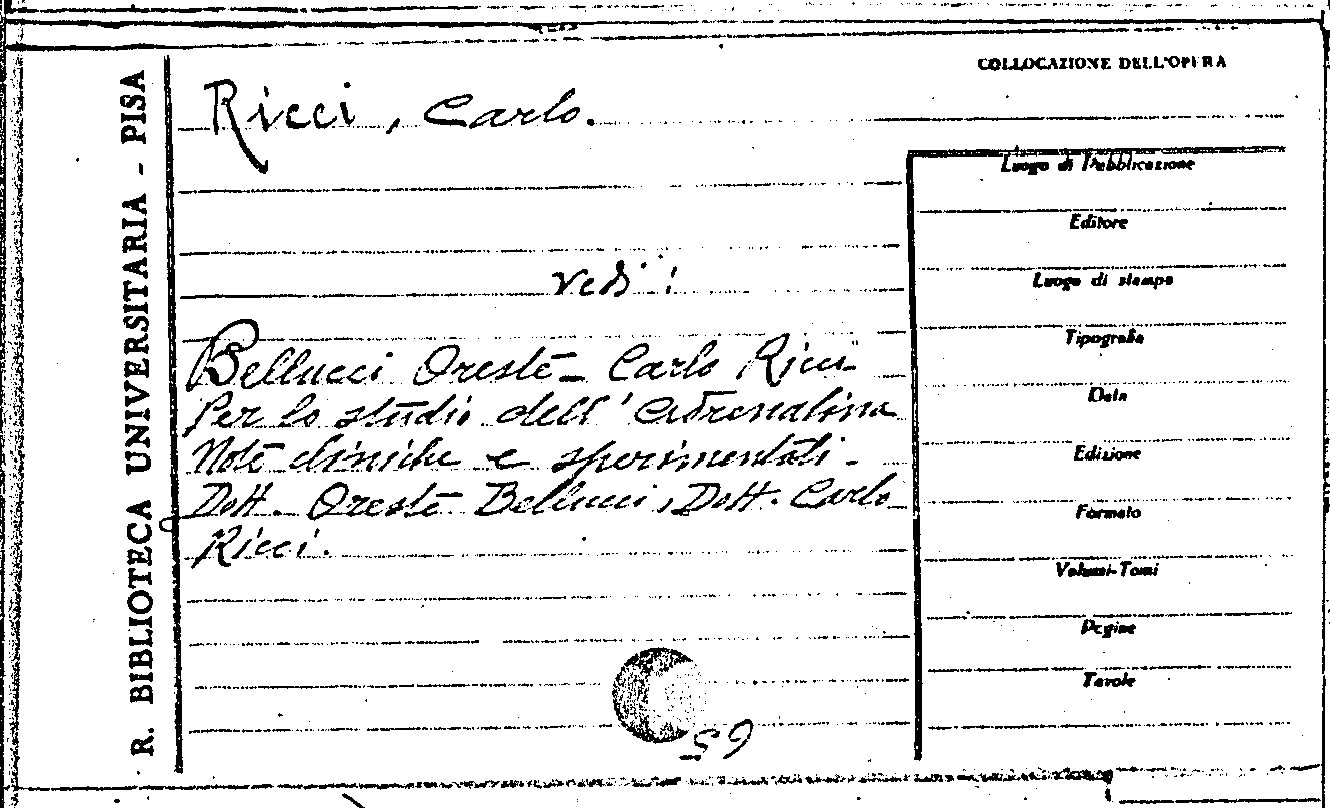 R. BIBLIOTECA UNIVERSITARIA - PISA
COLLOCAZIONE DELL'OPERA
Ricci, Carlo.
vedi:
Bellucci Oreste - Carlo Ricci
Per lo studio dell'Adrenalina
Note cliniche e sperimentali -
Dott. Oreste Bellucci, Dott. Carlo
Ricci.
Luogo di Pubblicazione
Editore
Luogo di stampa
Tipografia
Data
Edizione
Formato
Volumi-Tomi
Pagine
Tavole